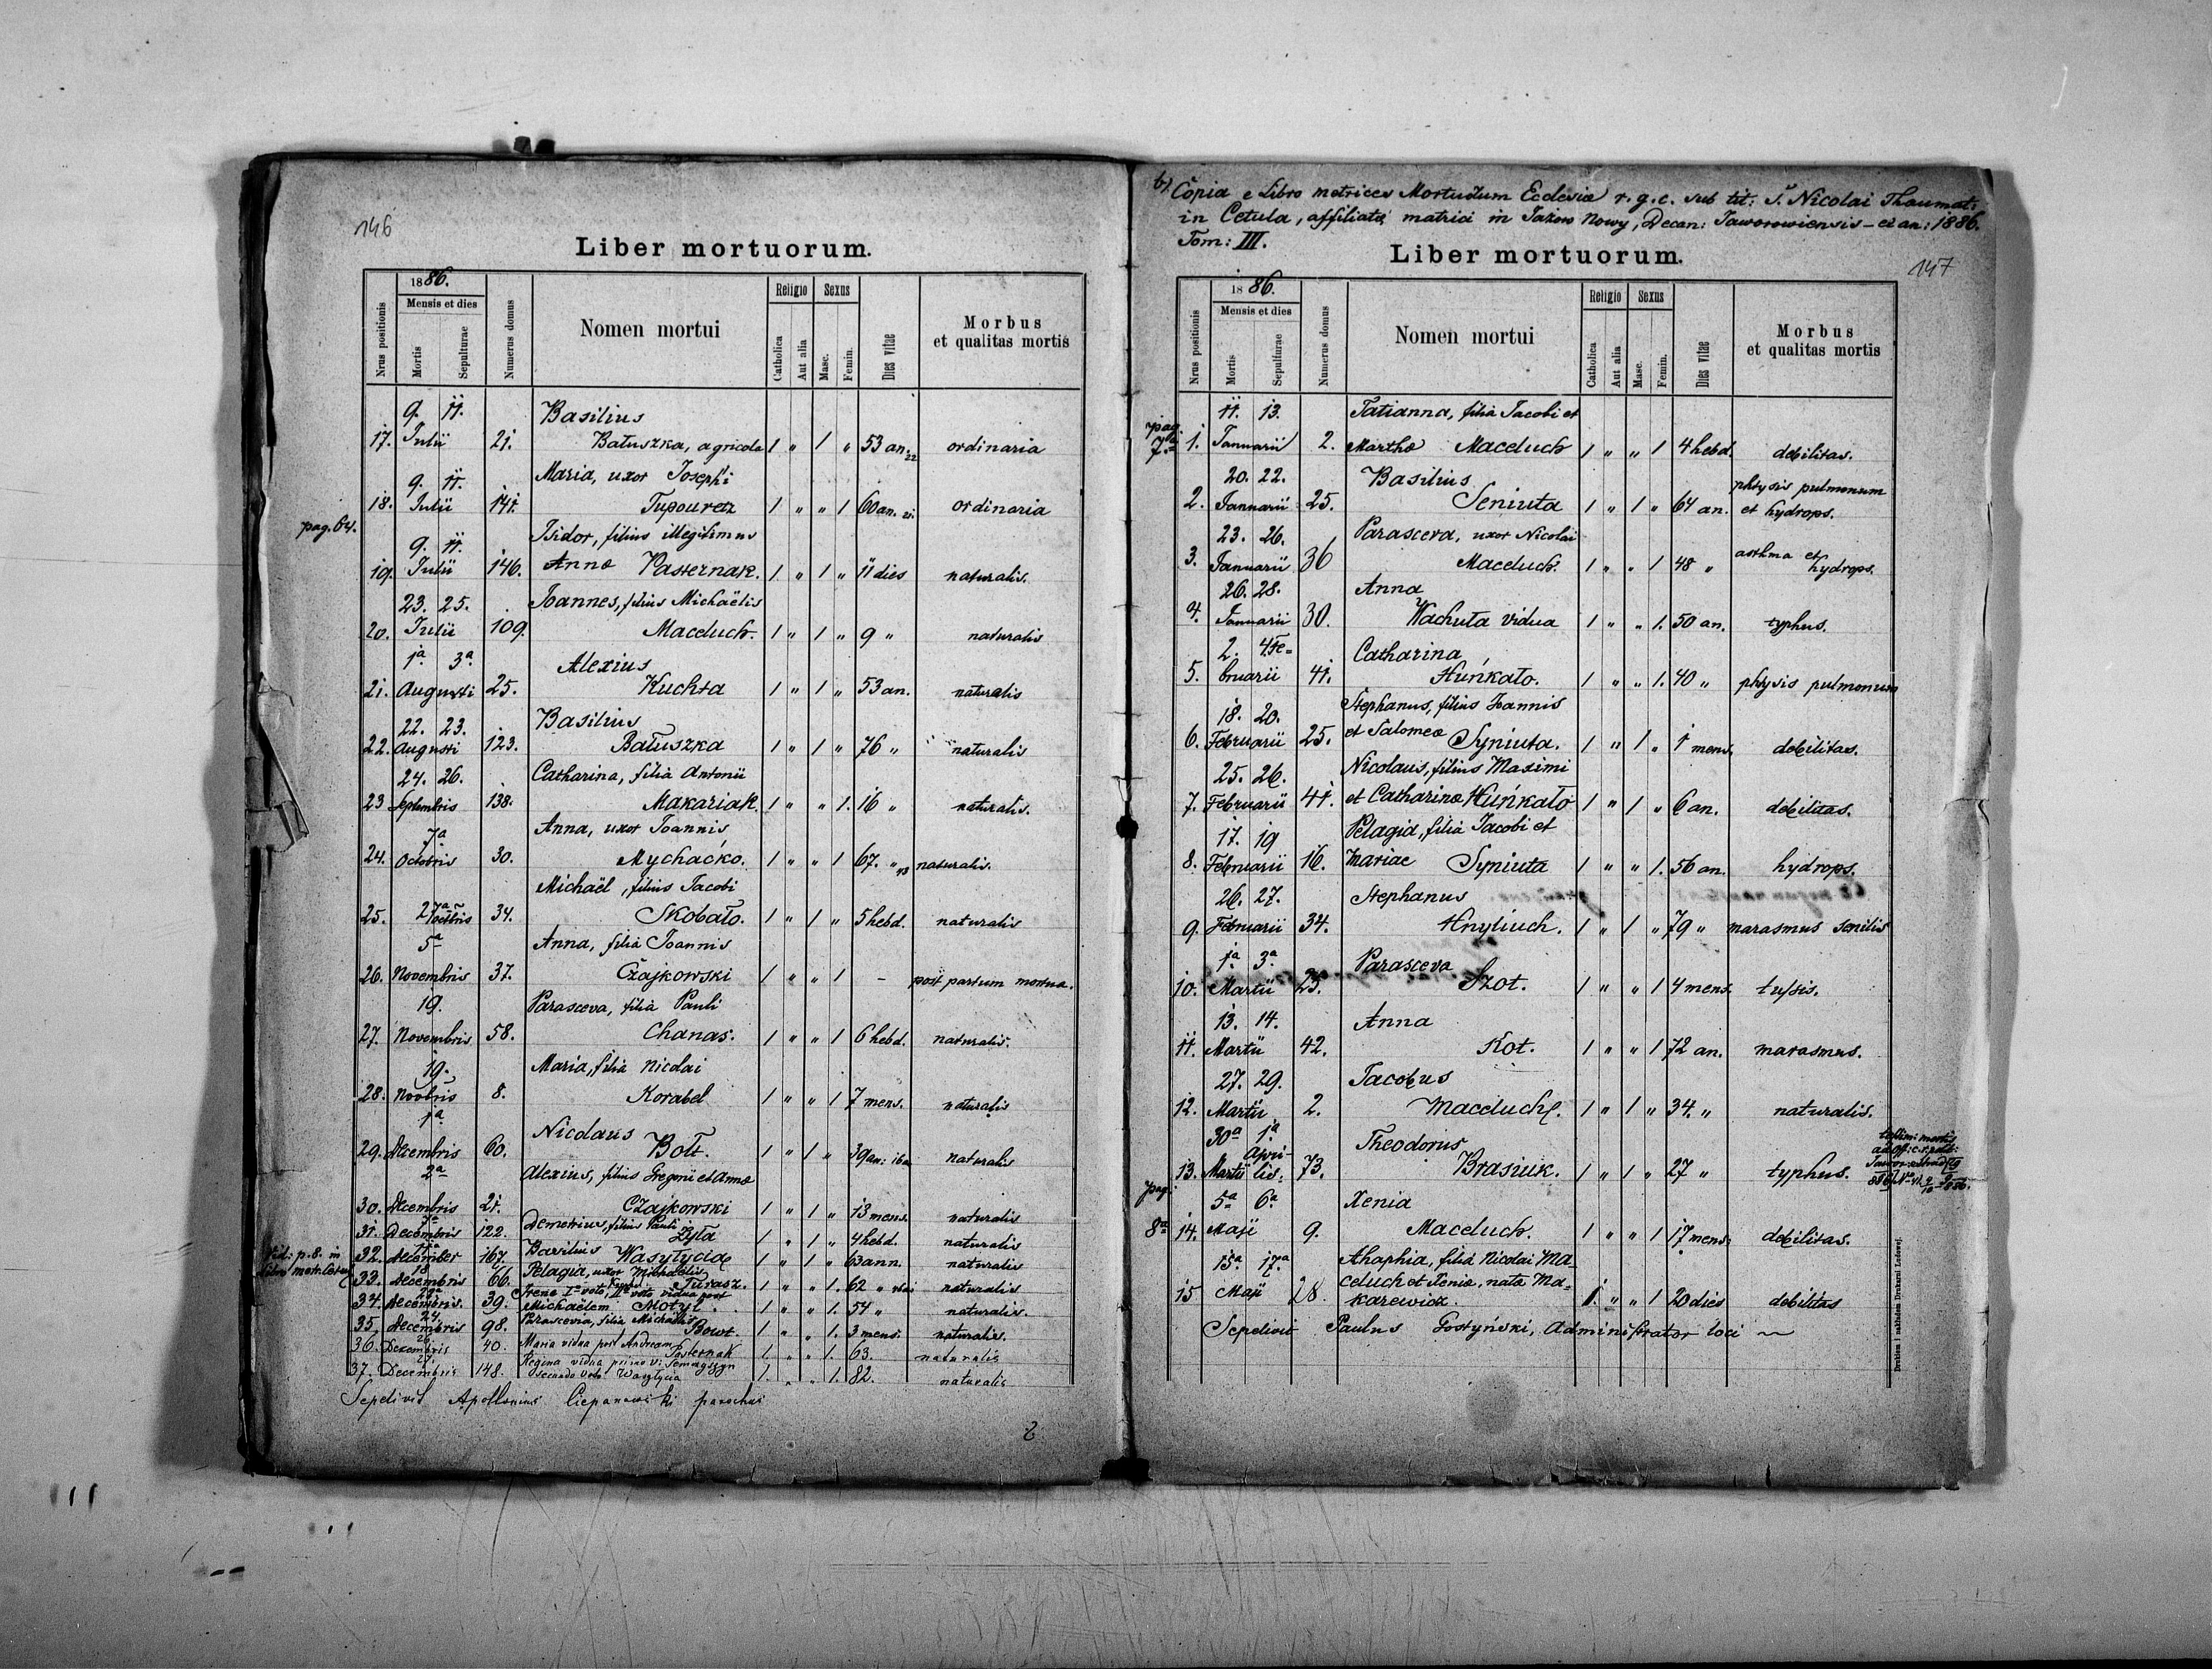 146
Liber mortuorum.
1886.
Nrus positionis
Mensis et dies
Mortis
Sepulturae
Numerus domus
Nomen mortui
Religio
Catholica
Aut alia
Sexus
Masc.
Femin.
Dies vitae
Morbus
et qualitas mortis
9. 11. Basilius
17. Julii 21. Batuszka, agricola 1 " 1 " 53 an. 22 ordinaria
9. 11. Maria, uxor Josephi
18. Julii 141. Tupouretz 1 " " 1 60 an. 21. ordinaria
pag. 64.
9. 11. Isidor, filius illegitimus
19. Julii 146. Annæ Pasternak. 1 " 1 " 11 dies naturalis.
23. 25. Joannes, filius Michaëlis
20. Julii 109. Maceluch. 1 " 1 " 9 " naturalis
1a 3a. Alexius
21. Augusti 25. Kuchta 1 " 1 " 53 an. naturalis
22. 23. Basilius
22. Augusti 123. Batuszka 1 " 1 " 76 " naturalis
24. 26. Catharina, filia Antonii
23 Septembris 138. Makariak 1 " " 1. 16 " naturalis.
7a Anna, uxor Joannis
24. Octobris 30. Mychaćko. 1 " " 1 67. " naturalis.
Michaël, filius Jacobi
25. 27a Octobris 34. Skobało. 1 " 1 " 5 hebd. naturalis
5a Anna, filia Joannis
26. Novembris 37. Czajkowski 1 " " 1 - post partum mortua.
19. Parasceva, filia Pauli
27. Novembris 58. Chanas. 1 " " 1 6 hebd. naturalis.
19. Maria, filia Nicolai
28. Novbris 8. Korabel 1 " " 1 7 mens. naturalis
1a. Nicolaus
29. Decembris 60. Bolt. 1 " 1 " 39 an: naturalis
2a Alexius, filius Gregorii et Annæ
30. Decembris 21. Czajkowski 1 " 1 " 13 mens. naturalis
31. Decembris 122. Demetrius, filius Pauli Zyła 1 " 1 " 4 hebd. naturalis
32. December 167. Basilius Wasyłycia 1 " 1 " 63 ann. naturalis
18
33. Decembris 66. Pelagia, uxor Michaëlis Turasz. 1 " " 1. 62 " naturalis
34. Decembris. 39. Irene I-o voto, II-o voto vidua post
Michaëlem Motyl. 1 " " 1. 54 " naturalis.
24
35. Decembris 98. Parascevia, filia Michaëlis Bowt. 1 " " 1. 3 mens: naturalis.
26
36. Decembris 40. Maria vidua post Andream Pasternak 1. " " 1. 63. naturalis
27.
37. Decembris 148. Regina vidua primo v:
secundo voto Wasyłycia 1. " " 1. 82. naturalis
Sepelivit Apollonius parochus
b) Copia e Libro metrices Mortuorum Ecclesiæ r.g.c. sub tit: S. Nicolai Thaumat:
in Cetula, affiliatæ matrici in Jażow Nowy, Decan: Jaworowiensis - ex an: 1886.
Tom: III.
Liber mortuorum.
147
1886.
Nrus positionis
Mensis et dies
Mortis
Sepulturae
Numerus domus
Nomen mortui
Religio
Catholica
Aut alia
Sexus
Masc.
Femin.
Dies vitae
Morbus
et qualitas mortis
pag. 7a
11. 13. Tatianna, filia Jacobi et
1. Januarii 2. Marthæ Maceluch 1 " " 1 4 hebd. debilitas.
20. 22. Basilius phtysis pulmonum
2. Januarii 25. Seniuta 1 " 1 " 64 an. et hydrops.
23. 26. Parasceva, uxor Nicolai
3. Januarii 36 Maceluch. 1 " " 1 48 " asthma et hydrops.
26. 28. Anna
4. Januarii 30. Wachuta vidua 1 " " 1. 50 an. typhus.
2. 4. Fe= Catharina
5. bruarii 41. Huńkało. 1 " " 1. 40 " phtysis pulmonum
18. 20. Stephanus, filius Joannis
6. Februarii 25. et Salomea Syniuta. 1 " 1 " 1 mens. debilitas.
25. 26. Nicolaus, filius Maximi
7. Februarii 41. et Catharinæ Huńkało 1 " 1 " 6 an. debilitas.
17. 19 Pelagia, filia Jacobi et
8. Februarii 16. Mariae Syniuta 1 " " 1. 56 an. hydrops.
26. 27. Stephanus
9. Februarii 34. Hnyliuch. 1 " 1 " 79 " marasmus senilis
1a. 3a. Parasceva
10. Martii 25. Szot. 1 " " 1 4 mens. tussis.
13. 14. Anna
11. Martii 42. Kot. 1 " " 1 72 an. marasmus.
27. 29. Jacobus
12. Martii 2. Maceluch. 1 " 1 " 34. " naturalis.
30a 1a Theodorus
Apri-
13. Martii lis: 73. Brasiuk. 1 " 1 " 27 " typhus.
pag. 8a
5a 6a Xenia
14. Maji 9. Maceluch. 1 " " 1 17 mens. debilitas.
15a. 17.a Ahaphia, filia Nicolai Ma-
celuch et Xeniæ, nata Ma=
15 Maji 28. karewicz. 1. " " 1 20 dies debilitas
Sepelivit Paulus Gostyński, Administrator loci
Drukiem i nakładem Drukarni Ludowej.